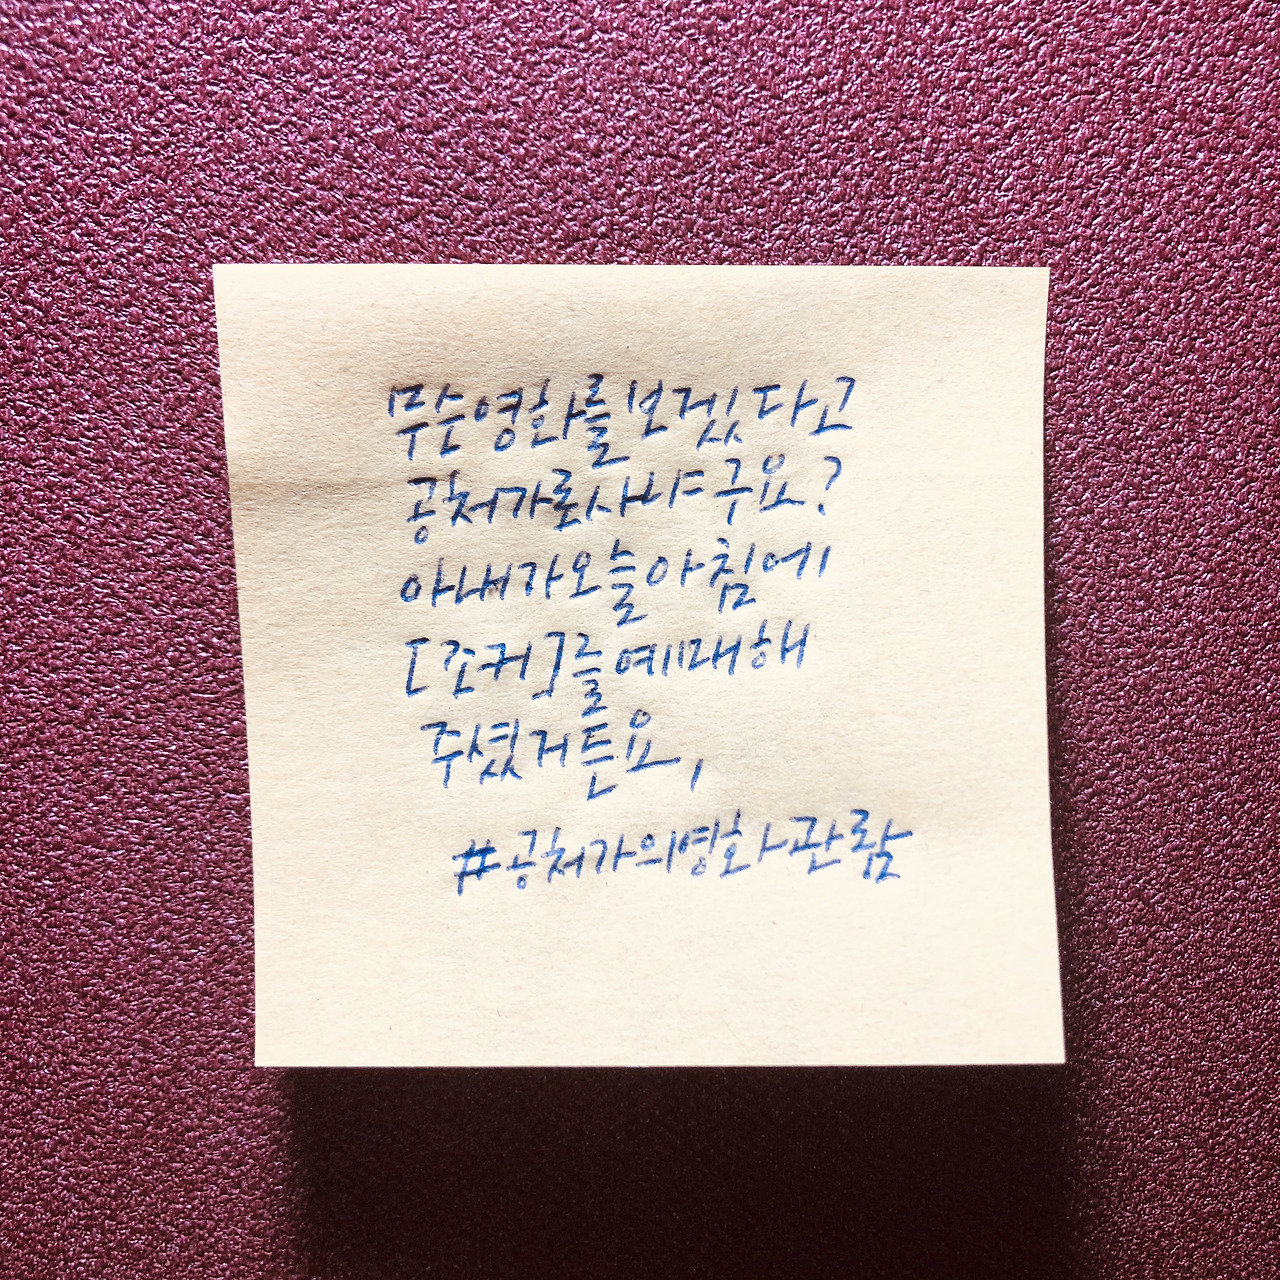 무슨 영화를 보겠다고
공처가로 사냐구요?
아내가 오늘 아침에
[조커]를 예매해
주셨거든요,
#공처가의영화관람